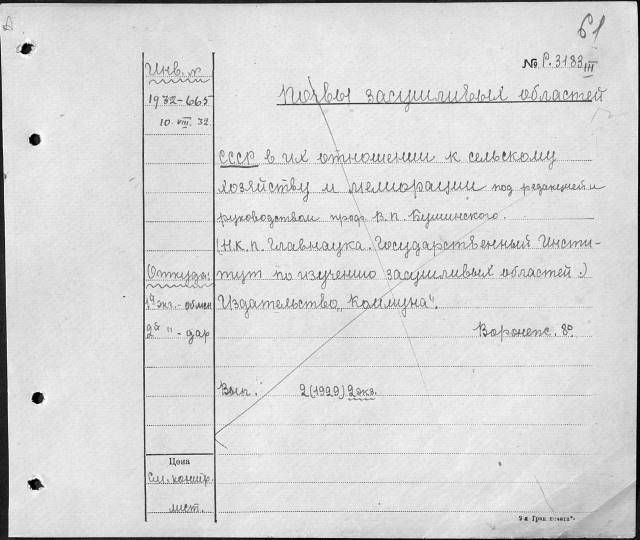 61
№ Р.3183 III
Инв. к
1932-665
10. VIII. 32.
Почвы засушливых областей
СССР в их отношении к сельскому
хозяйству и мелиорации под редакцией и
руководством проф. В. П. Бушинского.
(Н.К.П. Главнаука. Государственный Инсти-
тут по изучению засушливых областей.)
Издательство „Коммуна".
Воронеж. 8º
Откуда:
1й экз. - обмен
2й " - дар
Вып. 2 (1929) 2 экз.
Цена
См. контр.
лист.